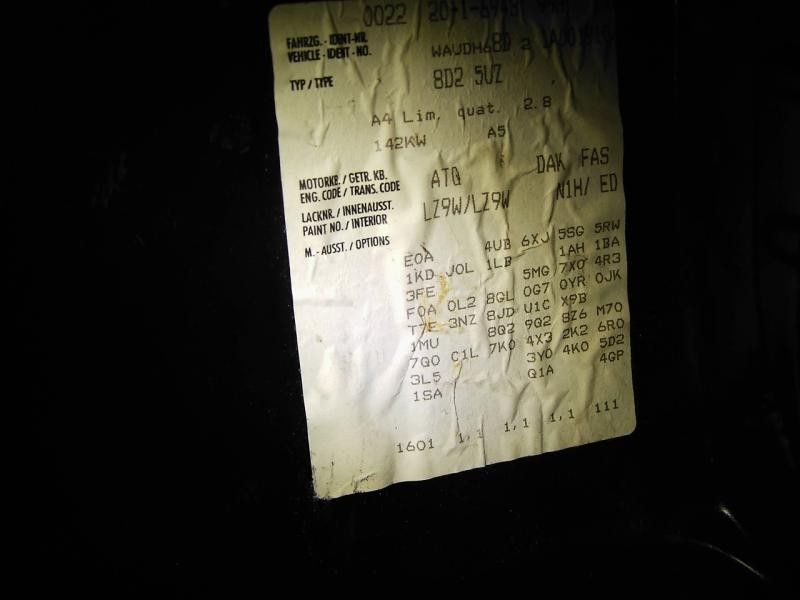 0022
FAHRZG. - IDENT-NR.
VEHICLE - IDENT - NO. WAUDH68D 2
TYP / TYPE 8D2 5UZ
A4 Lim, quat. 2.8
142KW A5
MOTORKB. / GETR. KB.
ENG. CODE / TRANS. CODE ATQ DAK FAS
LACKNR. / INNENAUSST.
PAINT NO. / INTERIOR LZ9W/LZ9W N1H/ ED
M. - AUSST. / OPTIONS
E0A 4UB 6XJ 5SG 5RW
1KD J0L 1LB 1AH 1BA
3FE 5MG 7X0 4R3
F0A 0L2 8GL 0G7 0YR 0JK
T7E 3NZ 8JD U1C X9B
1MU 8Q2 9Q2 8Z6 M70
7Q0 C1L 7K0 4X3 2K2 6R0
3L5 3Y0 4K0 5D2
1SA Q1A 4GP
1601 1,1 1,1 1,1 111